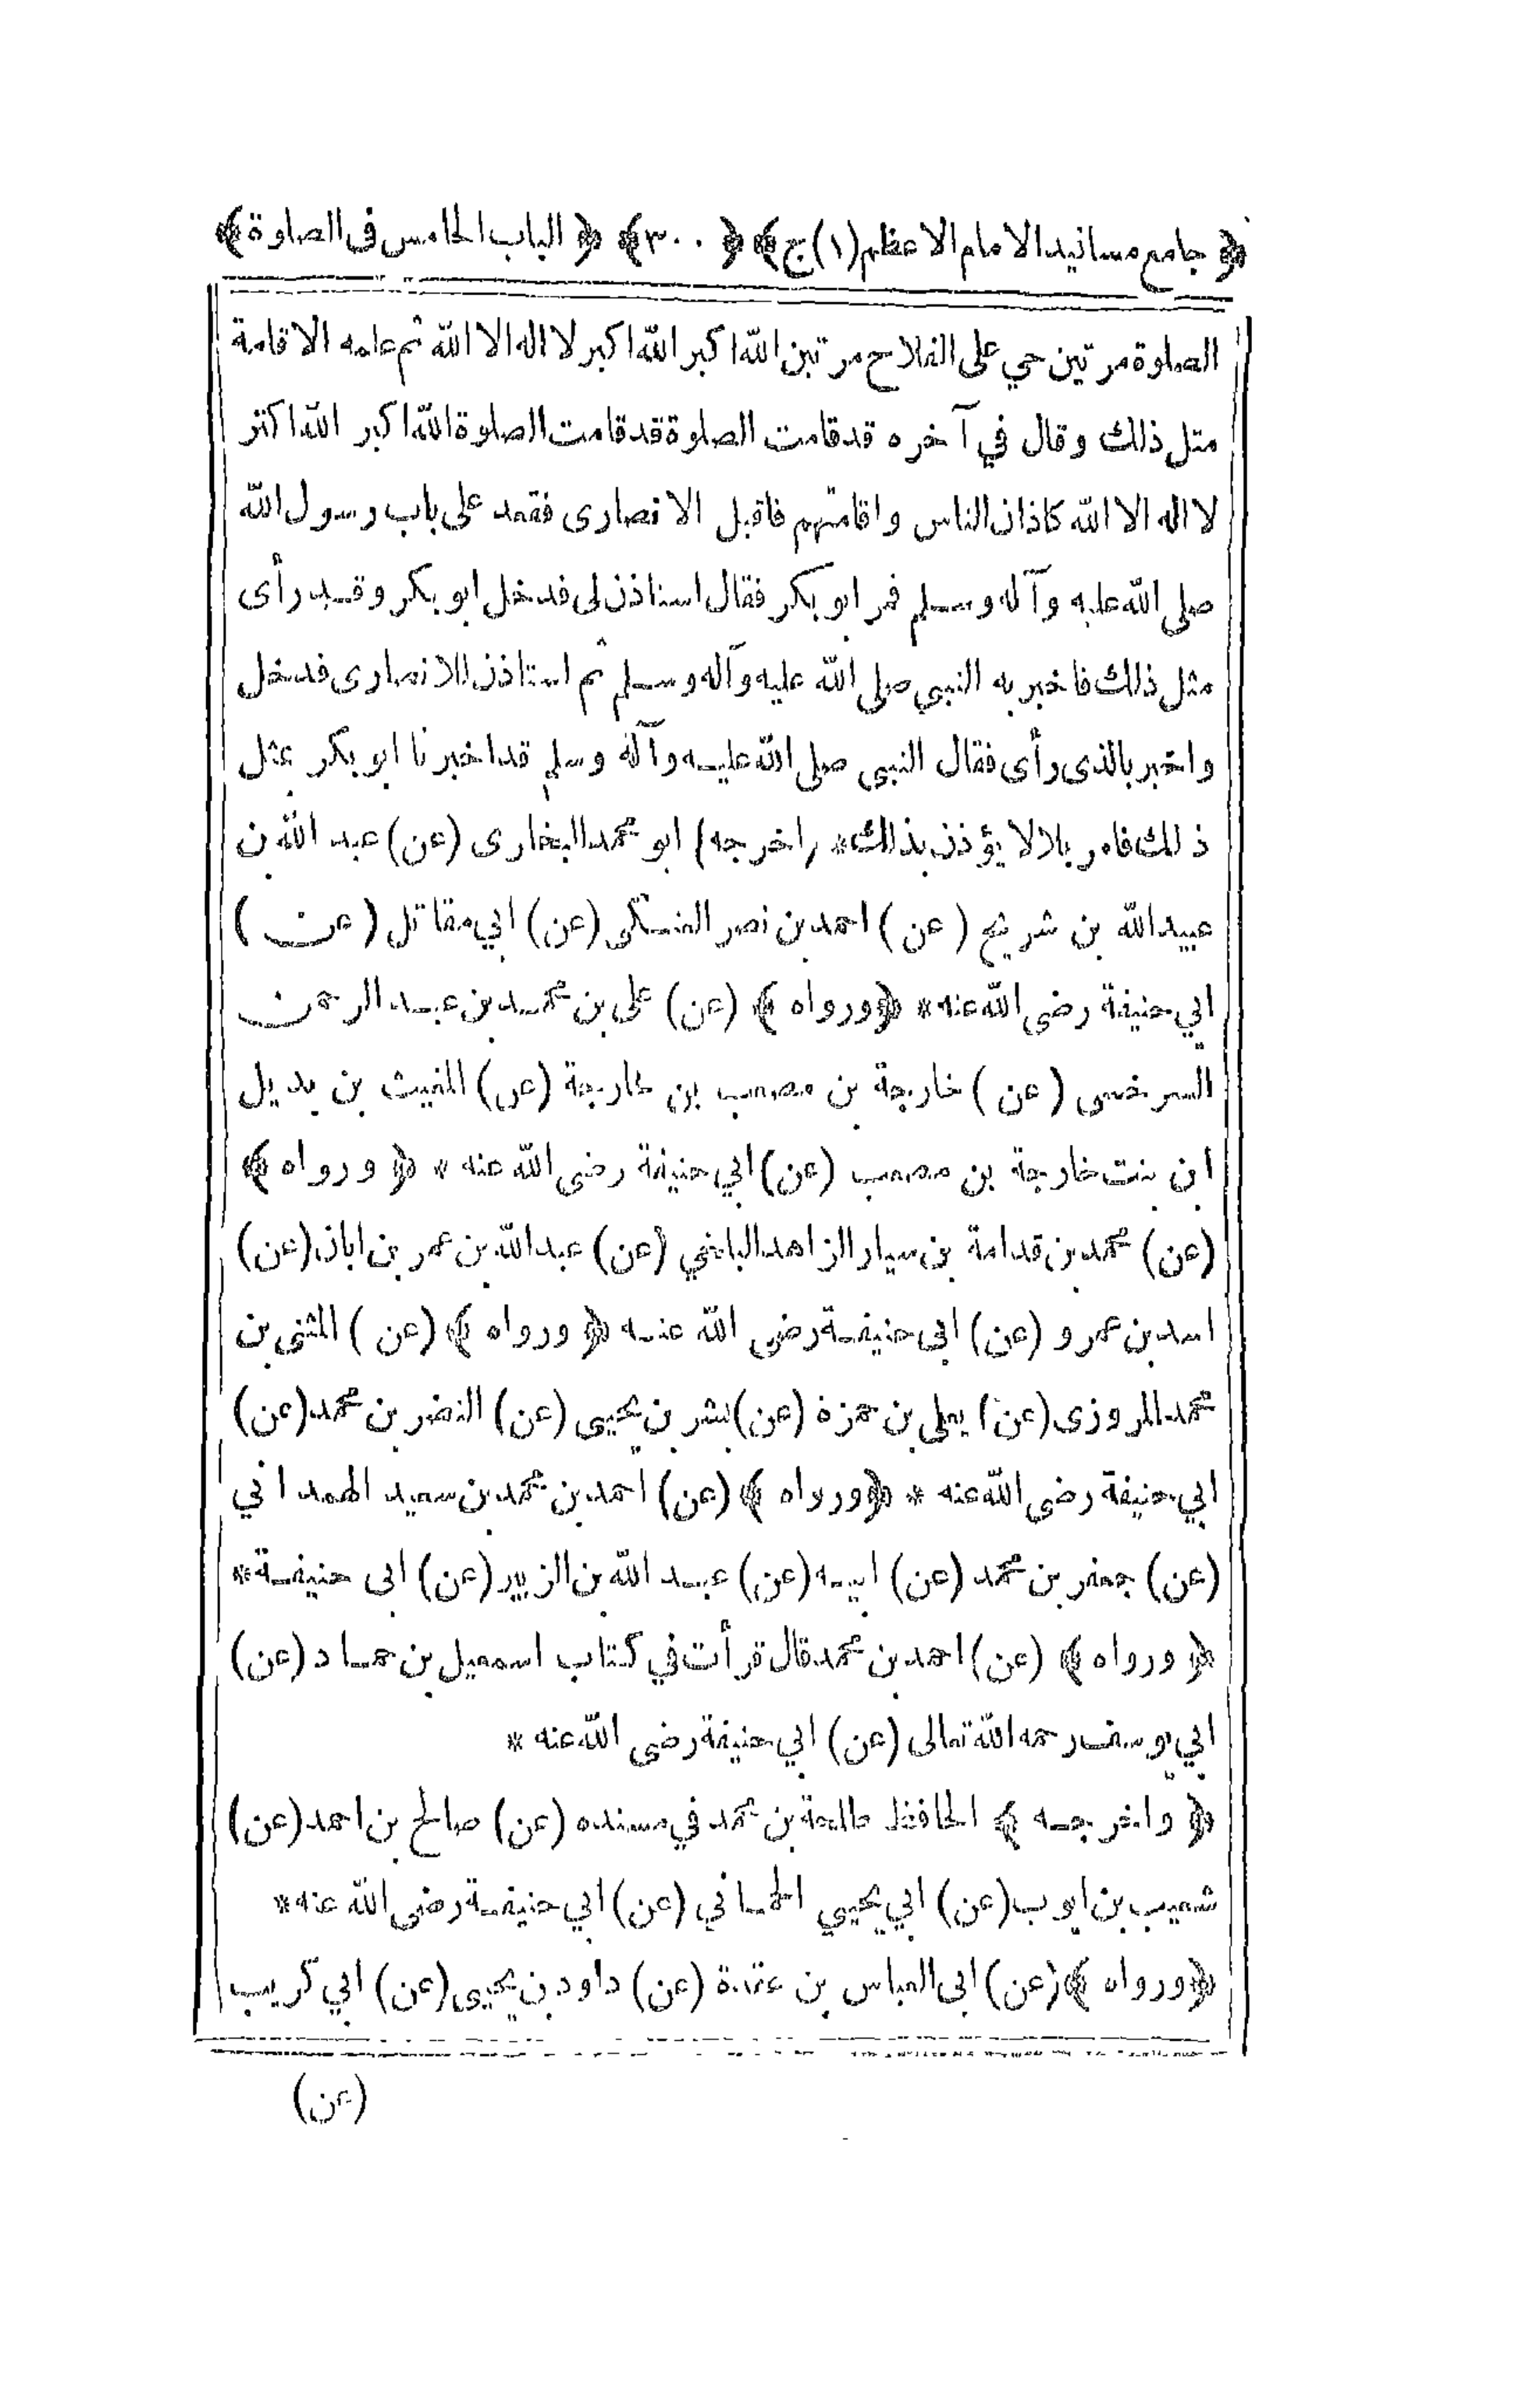 ﴿ جامع مسانيد الامام الاعظم (١) ج﴾ ﴿٣٠٠﴾ ﴿ الباب الخامس فى الصلوة ﴾
الصلوة مرتين حي على الفلاح مرتين الله اكبر الله اكبر لا اله الا الله ثم علمه الاقامة
مثل ذلك وقال في آخره قد قامت الصلوة قد قامت الصلوة الله اكبر الله اكبر
لا اله الا الله كاذان الناس واقامتهم فاقبل الانصارى فقعد على باب رسول الله
صلى الله عليه وآله وسلم فمر ابو بكر فقال استاذن لى فدخل ابو بكر وقد رأى
مثل ذلك فاخبر به النبي صلى الله عليه وآله وسلم ثم استاذن للانصارى فدخل
واخبر بالذى رأى فقال النبى صلى الله عليه وآله وسلم قد اخبرنا ابو بكر بمثل
ذلك فامر بلالا يؤذن بذلك* (اخرجه) ابو محمد البخارى (عن) عبد الله بن
عبيد الله بن شريح (عن) احمد بن نصر العتكى (عن) ابي مقاتل (عن)
ابي حنيفة رضى الله عنه * ﴿ورواه﴾ (عن) على بن محمد بن عبد الرحمن
السرخسى (عن) خارجة بن مصعب بن خارجة (عن) المغيث بن بديل
ابن بنت خارجة بن مصعب (عن) ابي حنيفة رضى الله عنه * ﴿ورواه﴾
(عن) محمد بن قدامة بن سيار الزاهد البلخي (عن) عبد الله بن عمر بن ابان (عن)
اسد بن عمرو (عن) ابى حنيفة رضى الله عنه ﴿ورواه﴾ (عن) المثنى بن
محمد المروزى (عن) يعلى بن حمزة (عن) بشر بن يحيى (عن) النضر بن محمد (عن)
ابي حنيفة رضى الله عنه * ﴿ورواه﴾ (عن) احمد بن محمد بن سعيد الهمداني
(عن) جعفر بن محمد (عن) ابيه (عن) عبد الله بن الزبير (عن) ابى حنيفة *
﴿ورواه﴾ (عن) احمد بن محمد قال قرأت في كتاب اسمعيل بن حماد (عن)
ابي يوسف رحمه الله تعالى (عن) ابي حنيفة رضى الله عنه *
﴿واخرجه﴾ الحافظ طلحة بن محمد في مسنده (عن) صالح بن احمد (عن)
شعيب بن ايوب (عن) ابي يحيي الحماني (عن) ابي حنيفة رضى الله عنه *
﴿ورواه﴾ (عن) ابى العباس بن عقدة (عن) داود بن يحيى (عن) ابي كريب
(عن)